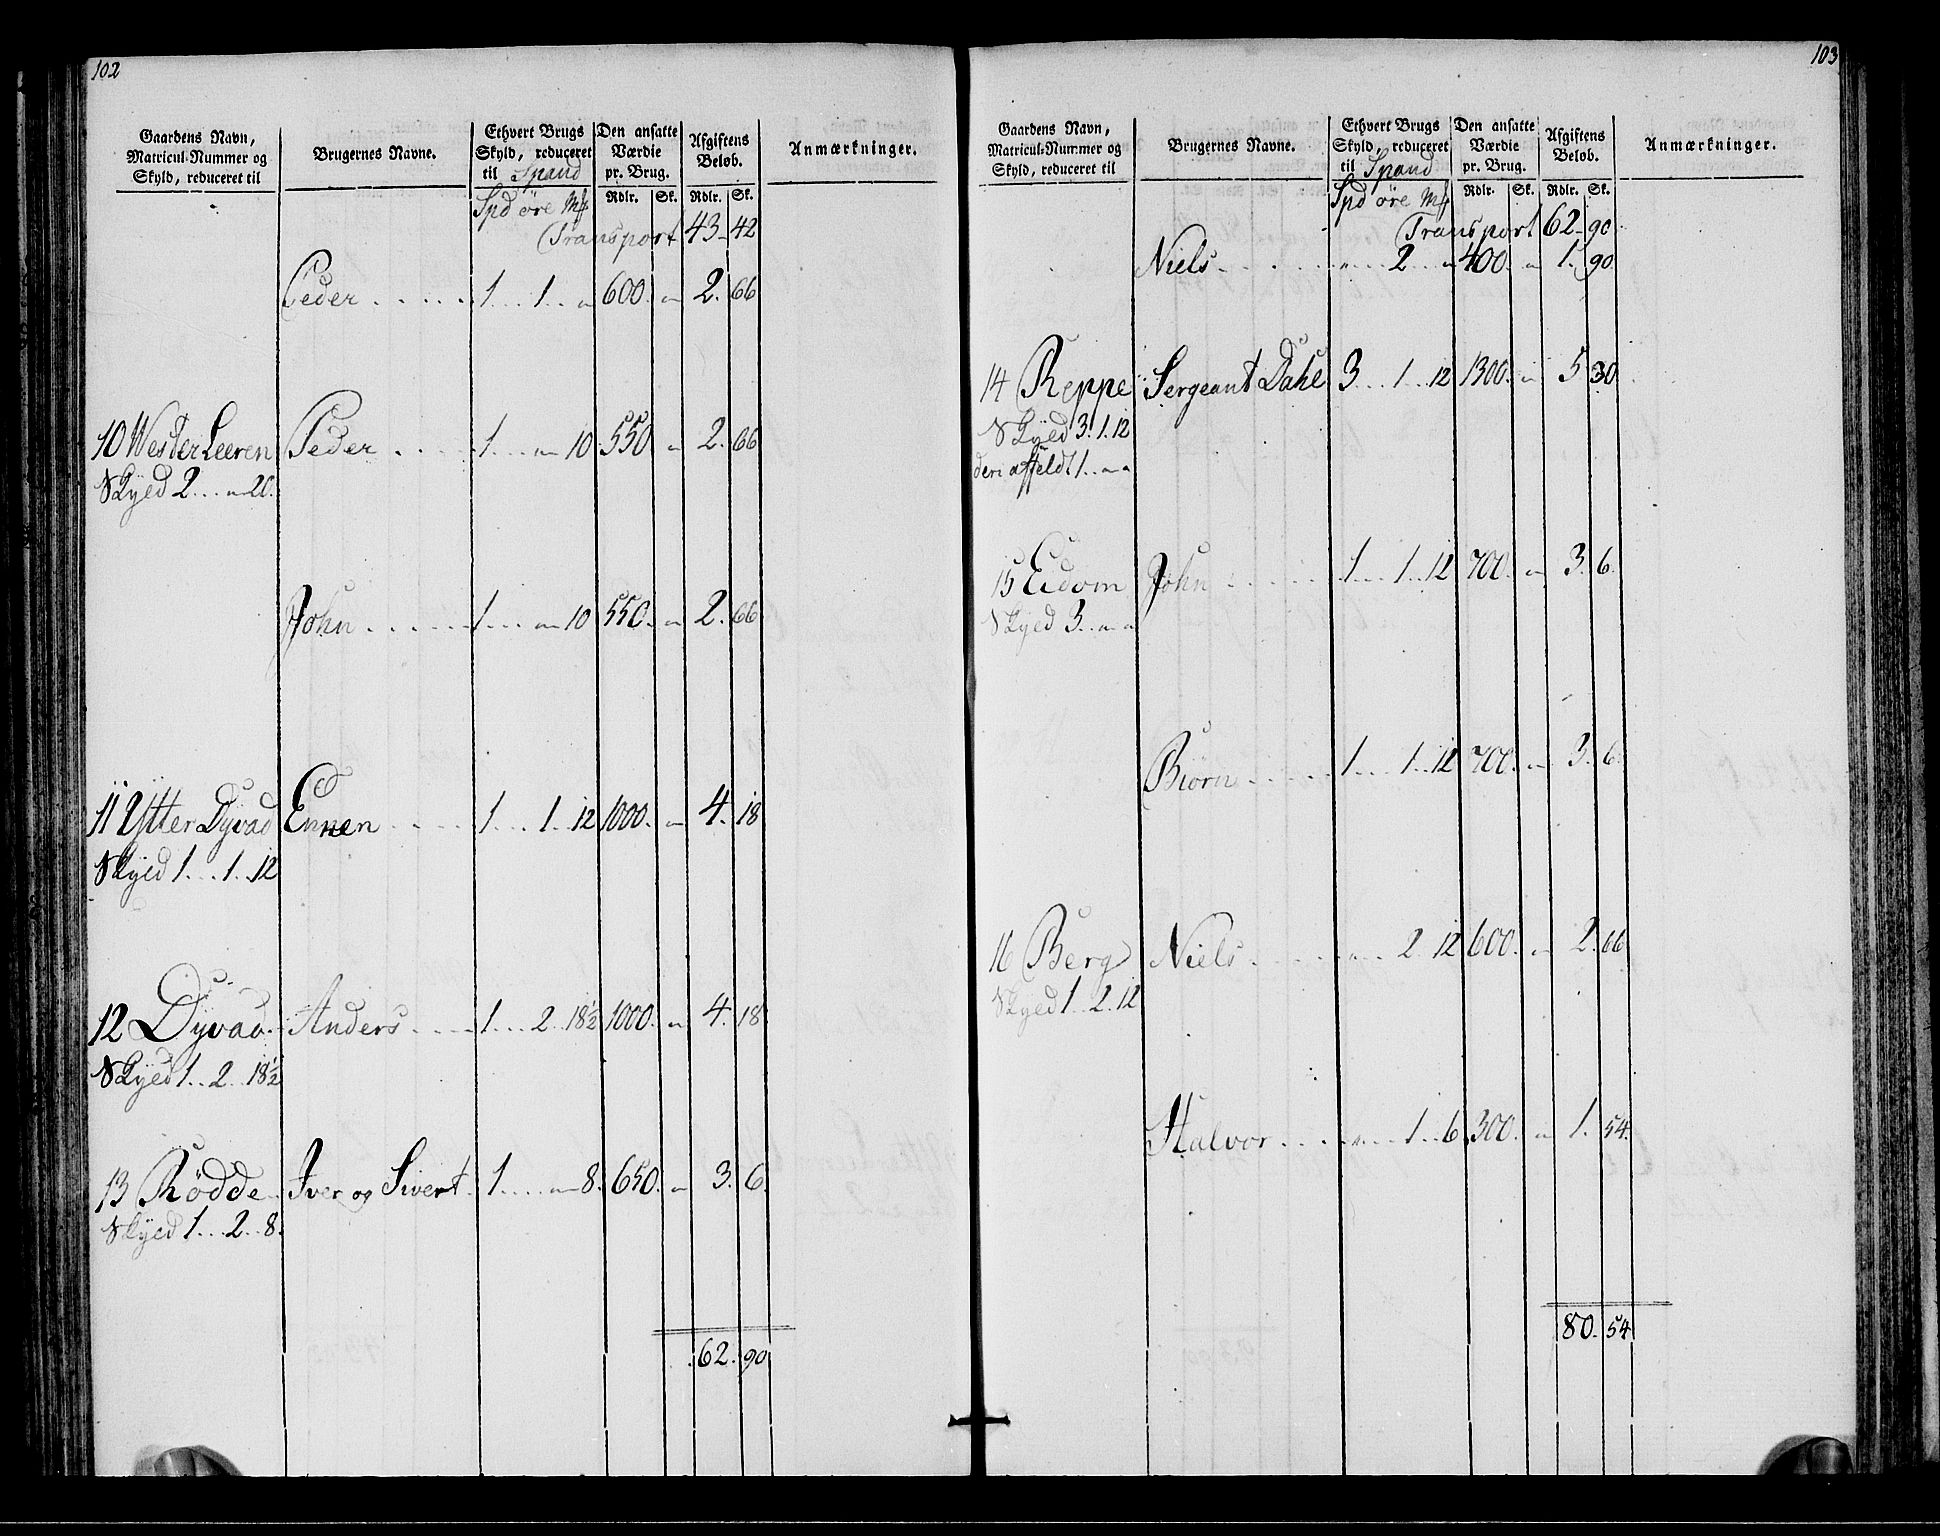 102
Gaardens Navn, Matricul-Nummer og Skyld, reduceret til
Brugernes Navne.
Ethvert Brugs Skyld, reduceret til Spand
Den ansatte Værdie pr. Brug.
Afgiftens Beløb.
Anmærkninger.
Spd øre Mk Rdlr. Sk. Rdlr. Sk.
Transport 43 - 42
Peder . . . . . 1 . . 1 . . " 600. " 2. 66
10 Wester Leeren Peder . . . . 1 . . . " 10. 550 " 2. 66
Skyld 2 . . . " 20.
John . . . . . 1 . . . " 10 550. " 2. 66
11 Ytter Dyvad Ennen . . . . 1 . . . 1 . 12 1000. " 4. 18
Skyld 1 . . . 1 . . 12
12 Dyvad Anders . . . . 1 . . . 2 . 18½ 1000. " 4. 18
Skyld 1 . . 2 . . 18½
13 Rödde Iver og Sivert. 1 . . . . " 8. 650. " 3. 6.
Skyld 1 . . . 2 . . 8.
62. 90
103
Gaardens Navn, Matricul-Nummer og Skyld, reduceret til
Brugernes Navne.
Ethvert Brugs Skyld, reduceret til Spand
Den ansatte Værdie pr. Brug.
Afgiftens Beløb.
Anmærkninger.
Spd øre Mk Rdlr. Sk. Rdlr. Sk.
Transport 62 - 90
Niels . . . . . " . . 2 . . " 400. " 1. 90
14 Reppe Sergeant Dahl 3 . . . 1 . . 12 1300. " 5 30
Skyld 3. 1. 12
den affeldt 1 . . " "
15 Eidom John . . . . . 1 . . . 1 . . 12 700. " 3. 6.
Skyld 3 . . " "
Biörn . . . . . 1 . . . 1 . . 12 700. " 3. 6
16 Berg Niels . . . . . " . . 2 . 12 600. " 2. 66
Skyld 1 . . 2 . 12
Halvor . . . . " . . . 1 . . 6 300. " 1. 54.
80. 54